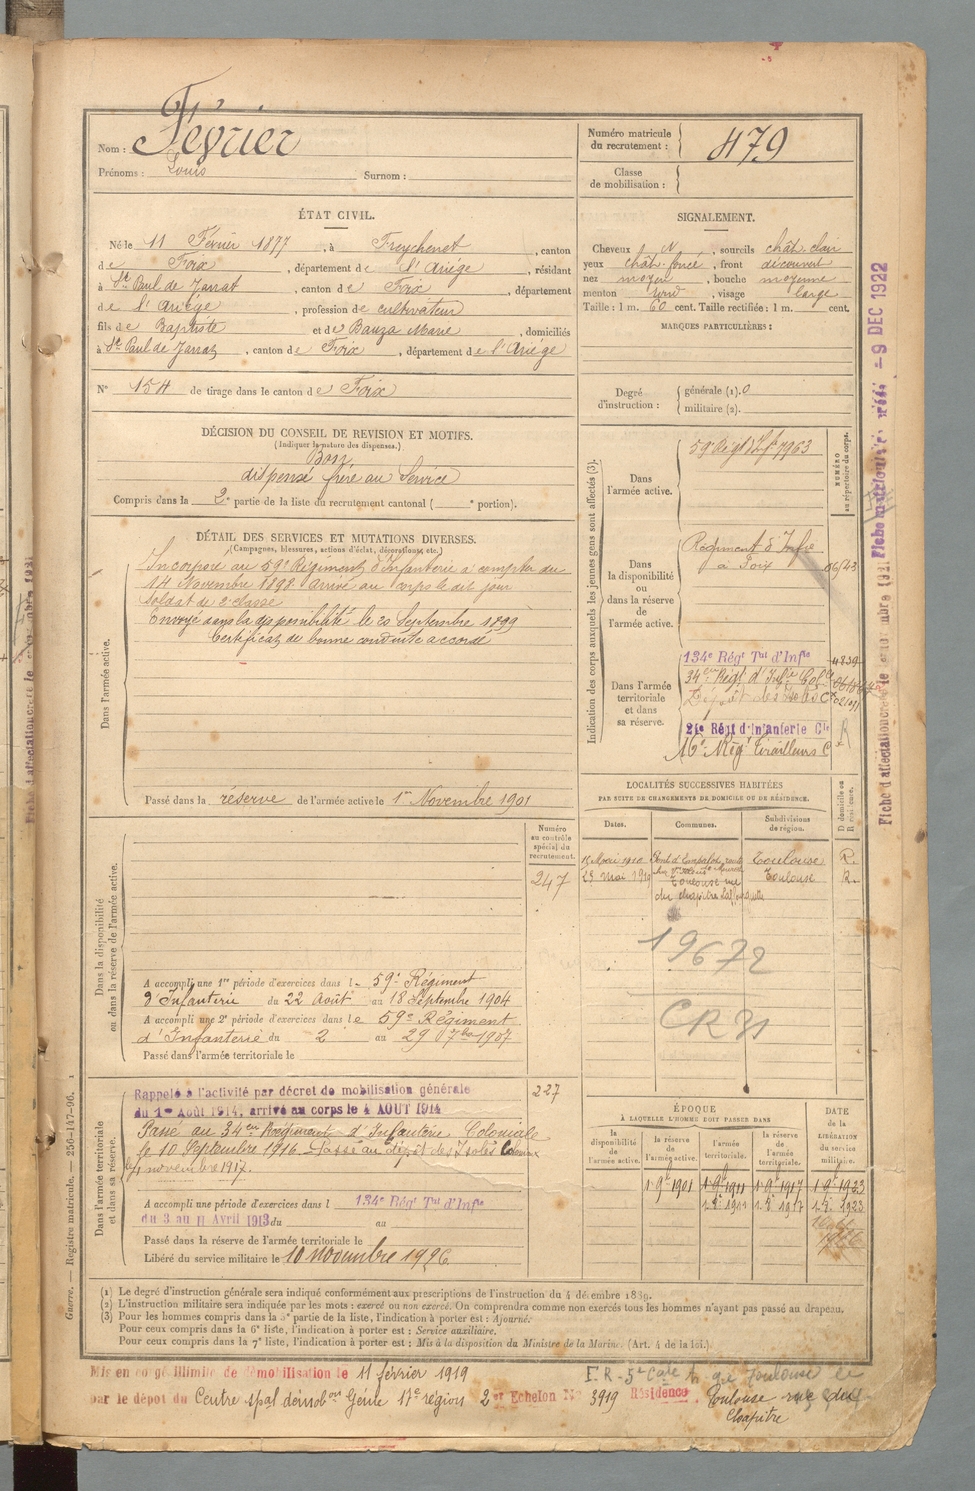 Nom : Février
Prénoms : Louis Surnom :
Numéro matricule du recrutement : 479
Classe de mobilisation :
ÉTAT CIVIL.
Né le 11 Février 1877, à Freychenet, canton
de Foix, département de l'Ariége, résidant
à St Paul de Jarrat, canton de Foix, département
de l'Ariége, profession de cultivateur
fils de Baptiste et de Bauza Marie, domiciliés
à St Paul de Jarrat, canton de Foix, département de l'Ariége
N° 154 de tirage dans le canton de Foix
SIGNALEMENT.
Cheveux N, sourcils chât. clair
yeux chât. foncé, front découvert
nez moyen, bouche moyenne
menton rond, visage large
Taille : 1 m. 60 cent. Taille rectifiée : 1 m. cent.
MARQUES PARTICULIÈRES :
Degré d'instruction :
générale (1). 0
militaire (2).
DÉCISION DU CONSEIL DE REVISION ET MOTIFS.
(Indiquer la nature des dispenses.)
Bon
dispensé frère au Service
Compris dans la 2e partie de la liste du recrutement cantonal ( e portion).
DÉTAIL DES SERVICES ET MUTATIONS DIVERSES.
(Campagnes, blessures, actions d'éclat, décorations, etc.)
Dans l'armée active.
Incorporé au 59e Régiment d'Infanterie à compter du
14 Novembre 1898 arrivé au corps le dit jour
Soldat de 2e classe
Envoyé dans la disponibilité le 20 Septembre 1899
Certificat de bonne conduite accordé
Passé dans la réserve de l'armée active le 1er Novembre 1901
Indication des corps auxquels les jeunes gens sont affectés (3).
NUMÉRO au répertoire du corps.
Dans l'armée active.
59e Régt d'Inf 7963
Dans la disponibilité ou dans la réserve de l'armée active.
Régiment d'Infie
à Foix
Dans l'armée territoriale et dans sa réserve.
134e Régt Tal d'Infie
34e Régt d'Infie Colle
Dépôt des Isolés Cx
24e Régt d'Infanterie Cle
16e Régt Tirailleurs C
R
LOCALITÉS SUCCESSIVES HABITÉES
PAR SUITE DE CHANGEMENTS DE DOMICILE OU DE RÉSIDENCE.
Dates. Communes. Subdivisions de région. D domicile ou R résidence.
1910 Toulouse R.
23 mai 1910 Toulouse rue Toulouse R.
du chapitre
19672
CR 31
Dans la disponibilité ou dans la réserve de l'armée active.
Numéro au contrôle spécial du recrutement.
247
A accompli une 1re période d'exercices dans le 59e Régiment
d'Infanterie du 22 Août au 18 Septembre 1904
A accompli une 2e période d'exercices dans le 59e Régiment
d'Infanterie du 2 au 29 7bre 1907
Passé dans l'armée territoriale le
Dans l'armée territoriale et dans sa réserve.
227
Rappelé à l'activité par décret de mobilisation générale
du 1er Août 1914, arrivé au corps le 4 AOUT 1914
Passé au 34eme Régiment d'Infanterie Coloniale
le 10 Septembre 1916. Passé au dépôt des Isolés Coloniaux
novembre 1917.
A accompli une période d'exercices dans l 134e Régt Tal d'Infie
du 3 au 11 Avril 1913 du au
Passé dans la réserve de l'armée territoriale le
Libéré du service militaire le 10 novembre 1926
ÉPOQUE
À LAQUELLE L'HOMME DOIT PASSER DANS
la disponibilité de l'armée active. la réserve de l'armée active. l'armée territoriale. la réserve de l'armée territoriale.
DATE de la LIBÉRATION du service militaire.
1 9e 1901 1 9e 1911 1 9e 1917 1 9e 1923
1911 1917 1923
(1) Le degré d'instruction générale sera indiqué conformément aux prescriptions de l'instruction du 4 décembre 1889.
(2) L'instruction militaire sera indiquée par les mots : exercé ou non exercé. On comprendra comme non exercés tous les hommes n'ayant pas passé au drapeau.
(3) Pour les hommes compris dans la 5e partie de la liste, l'indication à porter est : Ajourné.
Pour ceux compris dans la 6e liste, l'indication à porter est : Service auxiliaire.
Pour ceux compris dans la 7e liste, l'indication à porter est : Mis à la disposition du Ministre de la Marine. (Art. 4 de la loi.)
Mis en congé illimité de démobilisation le 11 février 1919
par le dépôt du Centre spal démobon Genle 17e région 2 Echelon No 3919 Résidence Toulouse rue du
Chapitre
Guerre. — Registre matricule. — 256-147-96.
9 DEC 1922